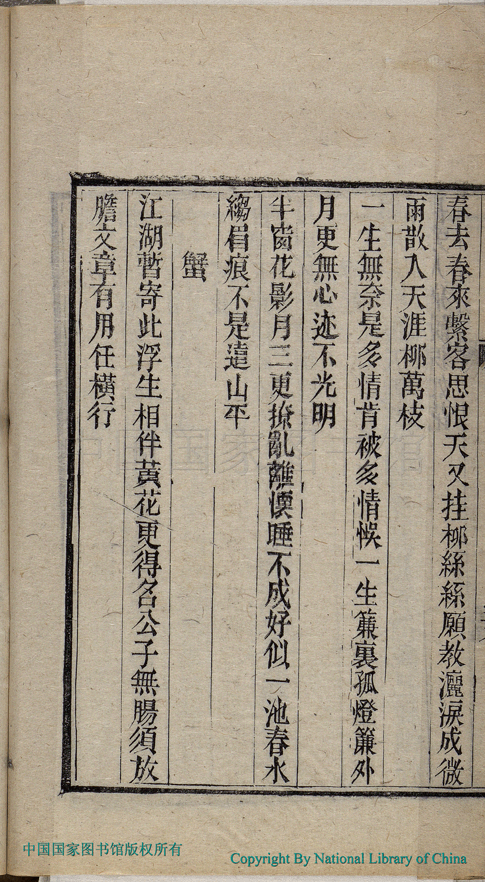 春去春來繫客思恨天又挂柳絲絲願教灑淚成微
雨散入天涯柳萬枝
一生無奈是多情肯被多情悞一生簾裏孤燈簾外
月更無心迹不光明
半窗花影月三更撩亂離懷睡不成好似一池春水
縐眉痕不是遠山平
蟹
江湖暫寄此浮生相伴黃花更得名公子無腸須放
膽文章有用任橫行
中国国家图书馆版权所有
Copyright By National Library of China